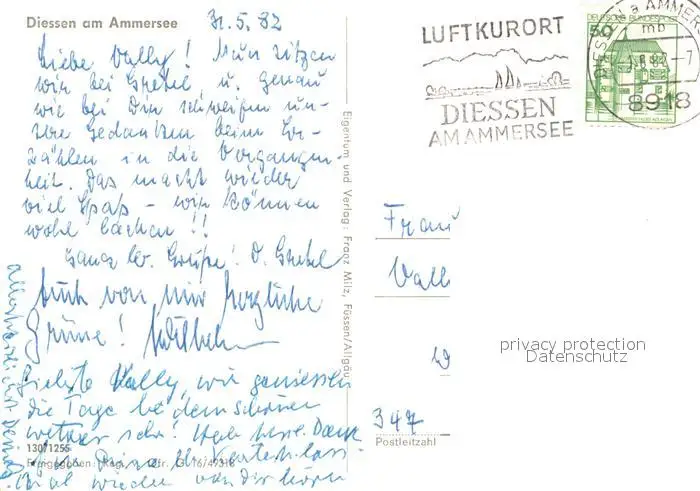 Diessen am Ammersee
31.5.82
Liebe Vally! Nun sitzen
wir bei Gretel u. genau
wie bei Dir schweifen un-
sere Gedanken beim Er-
zählen in die Vergangen-
heit. Das macht wieder
viel Spaß – wir können
wohl lachen!!
Ganz lb. Grüße! D. Gretel
Auch von mir herzliche
Grüsse! Wilhelm
Liebste Vally, wir geniessen
die Tage bei dem schönen
wetter sehr! Hab Dank
wieder von Dir hören
130/1255
Freigegeben: Reg.
G 16/49318
Eigentum und Verlag: Franz Milz, Füssen/Allgäu
LUFTKURORT
DIESSEN
AM AMMERSEE
DEUTSCHE BUNDESPOST
50
DIESSEN a AMMERS
mb
-7
8918
Frau
Vall
W
347
Postleitzahl
privacy protection
Datenschutz